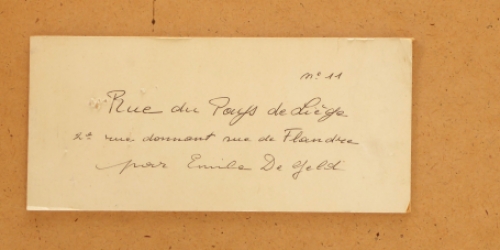 n° 11
Rue du Pays de Liège
2e rue donnant rue de Flandre
par Emile De Geld